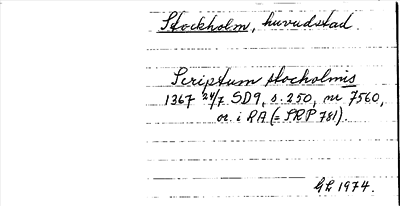 Stockholm, huvudstad.
Scriptum stocholmis
1367 24/7 SD9, s. 250, nr 7560,
or. i RA (= SRP 781).
GL 1974.